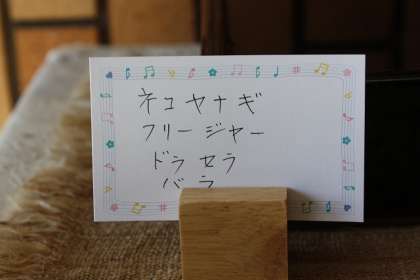 ネコヤナギ
フリージャー
ドラセラ
バラ